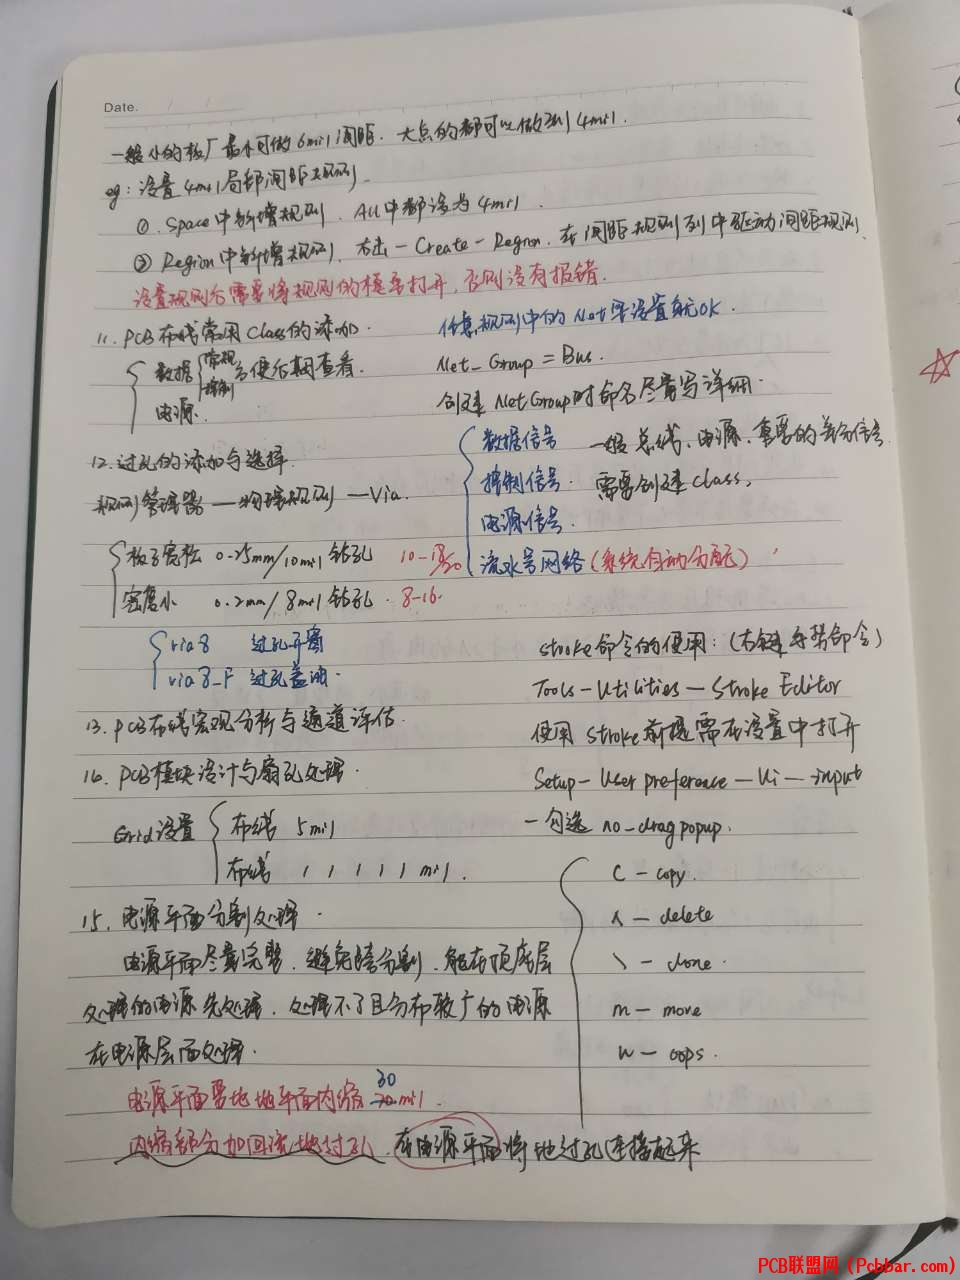 Date.
一般小的板厂最小可做6mil间距. 大点的都可以做到4mil.
eg: 设置4mil局部间距规则.
①. Space中新增规则. All中都设为4mil.
② Region中新增规则. 右击-Create-Region. 在间距规则列中驱动间距规则.
设置规则后需要将规则的模式打开, 否则没有报错.
11. PCB布线常用Class的添加.
数据 常规 控制 方便后期查看.
电源.
规则中的Net 设置就OK.
Net_Group = Bus.
创建NetGroup时命名尽量写详细.
数据信号
控制信号.
电源信号.
流水号网络 (系统自动分配)
一般总线、电源、重要的差分信号
需要创建Class.
12. 过孔的添加与选择.
规则管理器—物理规则—Via.
板子宽松 0.25mm/10mil 钻孔 10-18/20
密度小 0.2mm/8mil 钻孔. 8-16.
via8 过孔开窗
via8_F 过孔盖油.
13. PCB布线宏观分析与通道评估.
14. PCB模块设计与扇孔处理.
Grid设置 布线 5mil
布线 1 1 1 1 1 mil.
15. 电源平面分割处理.
电源平面尽量完整. 避免跨分割. 能在顶底层
处理的电源先处理. 处理不了且分布较广的电源
在电源层面处理.
电源平面要比地平面内缩 30 mil.
内缩部分加回流地过孔. 在电源平面将地过孔连接起来
stroke命令的使用: (右键手势命令)
Tools-Utilities-Stroke Editor
使用stroke前提需在设置中打开
Setup-User preference-Ui-input
-勾选 no_dragpopup.
C - copy.
∧ - delete
\ - done.
m - move
w - oops.
PCB联盟网(Pcbbar.com)